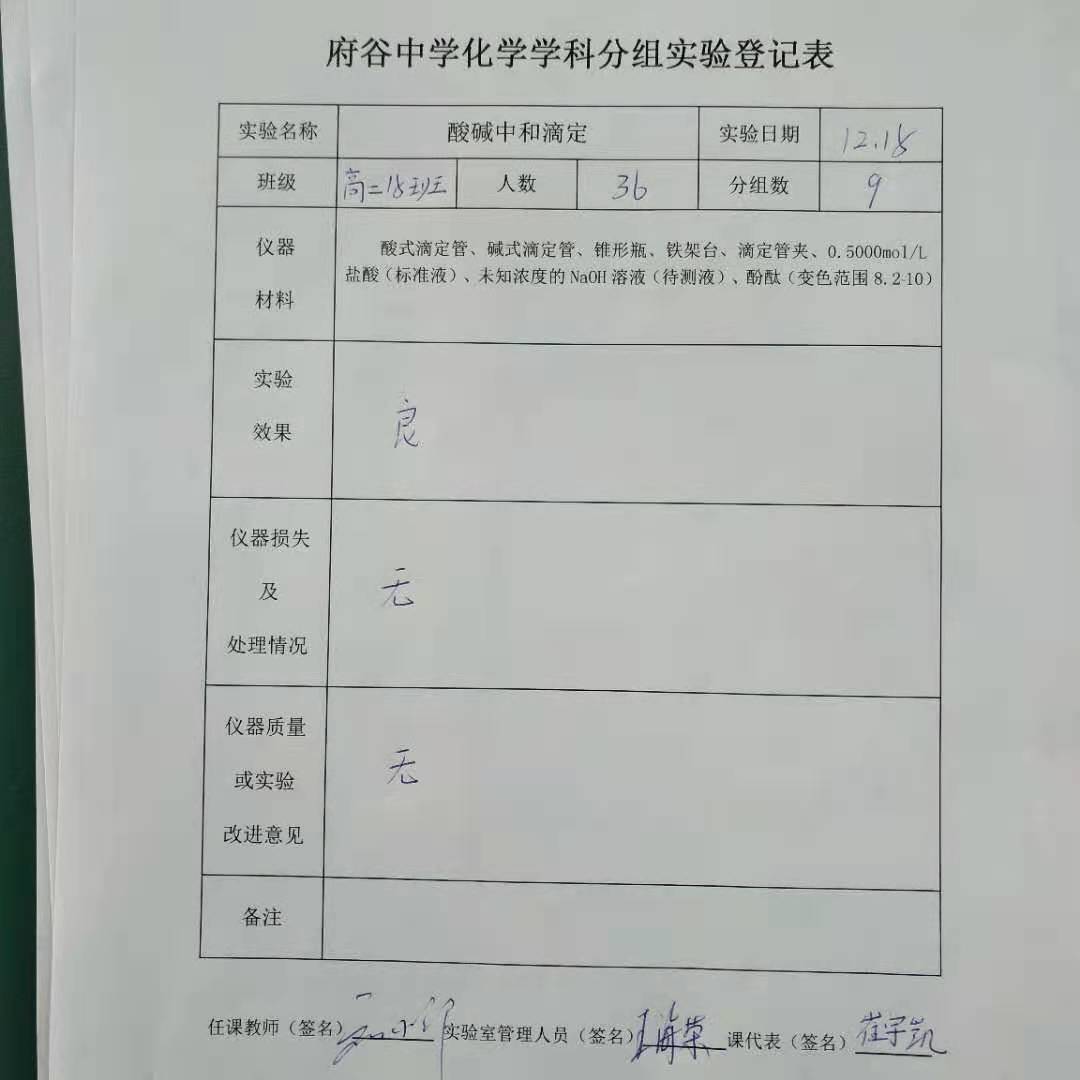 府谷中学化学学科分组实验登记表
实验名称 酸碱中和滴定 实验日期 12.18
班级 高二18班 人数 36 分组数 9
仪器
材料
酸式滴定管、碱式滴定管、锥形瓶、铁架台、滴定管夹、0.5000mol/L
盐酸（标准液）、未知浓度的NaOH溶液（待测液）、酚酞（变色范围8.2-10）
实验
效果
良
仪器损失
及
处理情况
无
仪器质量
或实验
改进意见
无
备注
任课教师（签名） 实验室管理人员（签名）王海荣 课代表（签名）崔宇凯